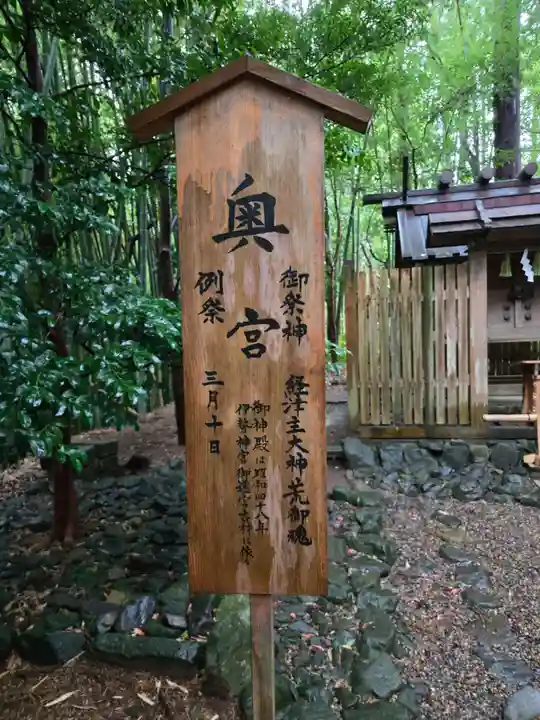 奥宮
御祭神 経津主大神荒御魂
例祭 三月十日
御神殿は昭和四十八年
伊勢神宮御遷宮古材に依る